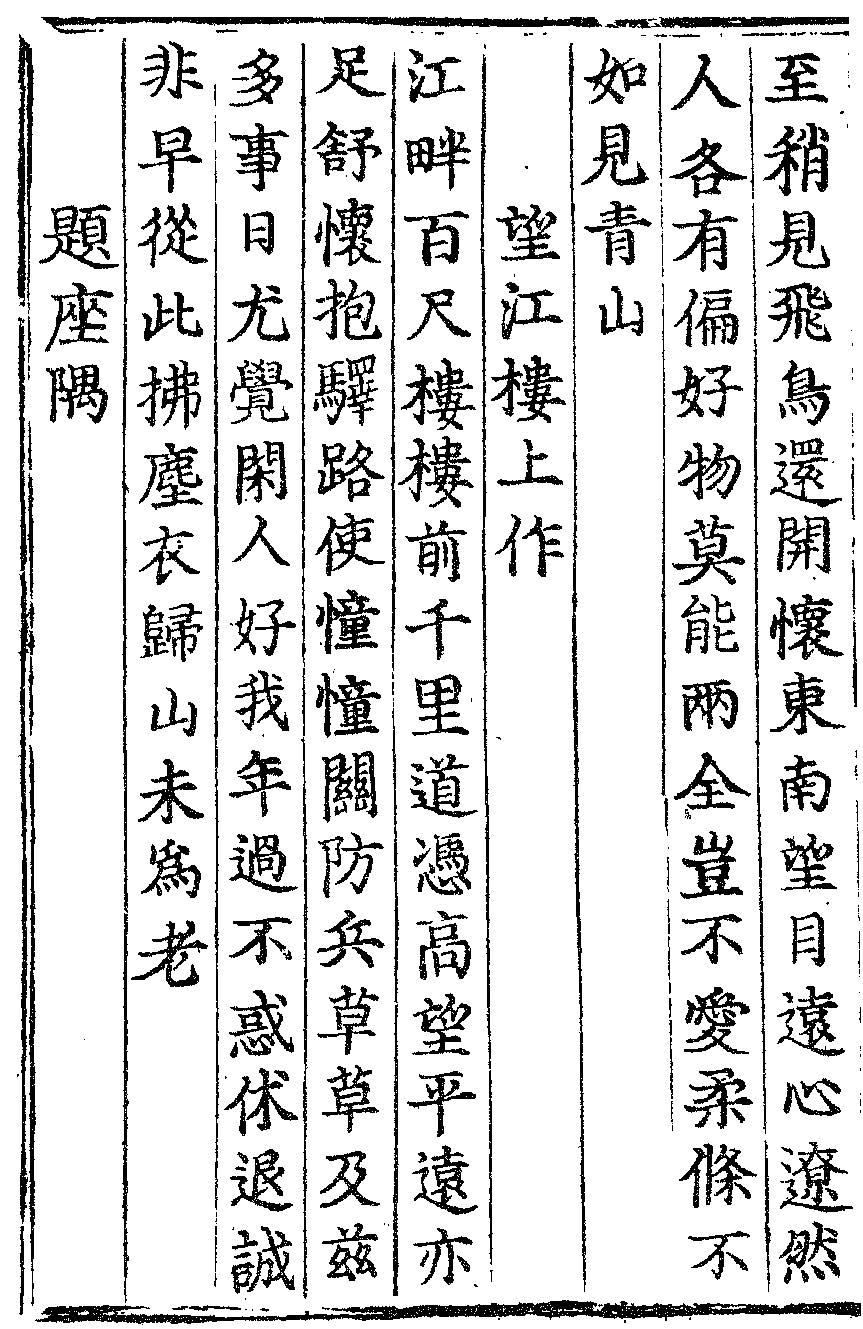 至稍見飛鳥還開懷東南望目遠心遼然
人各有偏好物莫能兩全豈不愛柔條不
如見青山
望江樓上作
江畔百尺樓樓前千里道憑高望平遠亦
足舒懷抱驛路使憧憧關防兵草草及兹
多事日尤覺閑人好我年過不惑休退誠
非早從此拂塵衣歸山未爲老
題座隅